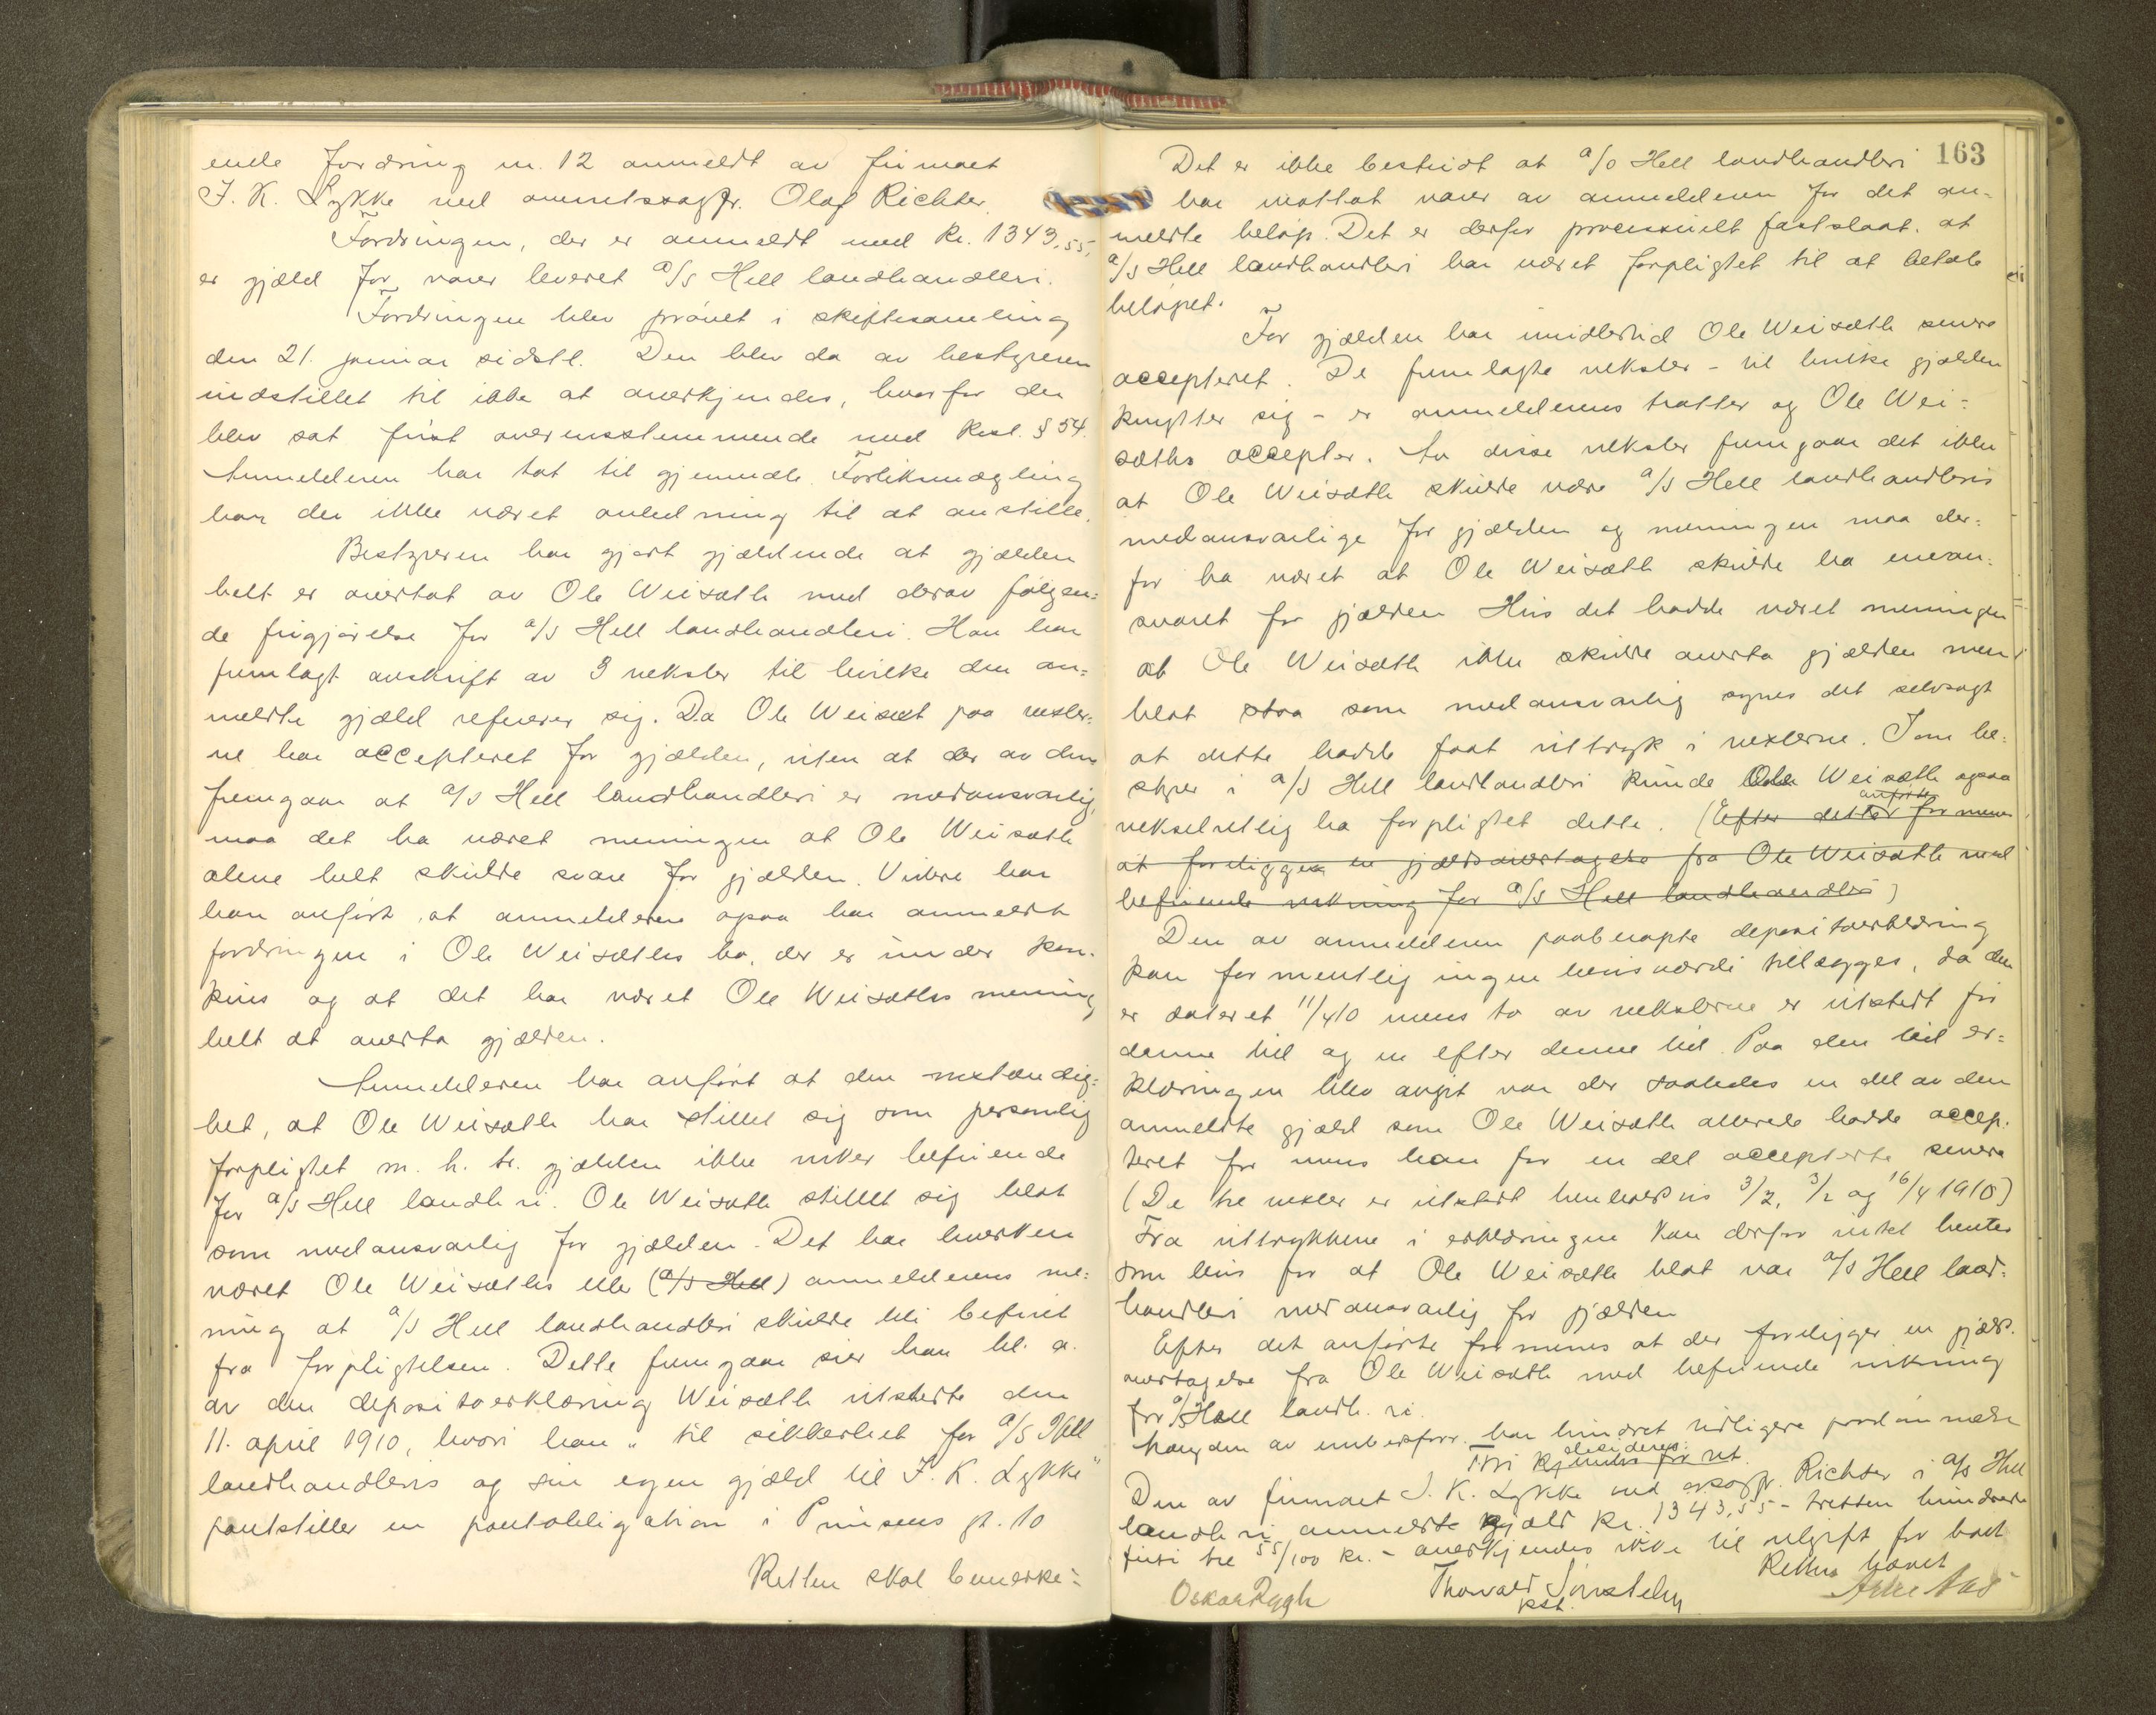 ende fordring nr. 12 anmeldt av firmaet
I. K. Lykke ved overretssagfr. Olaf Richter.
Fordringen, der er anmeldt med kr. 1343,55,
er gjæld for varer leveret a/s Hell landhandleri.
Fordringen blev prøvet i skiftesamling
den 21. januar sidstl. Den blev da av bestyreren
indstillet til ikke at anerkjendes, hvorfor der
blev sat frist overensstemmende med Ksl. § 54.
Anmelderen har tat til gjenmæle. Forliksmægling
har der ikke været anledning til at anstille.
Bestyreren har gjort gjældende at gjælden
helt er overtat av Ole Weisæth med derav følgen=
de frigjørelse for a/s Hell landhandleri. Han har
fremlagt avskrift av 3 veksler til hvilke den an=
meldte gjæld refererer sig. Da Ole Weisæt paa veksler=
ne har accepteret for gjælden, uten at der av dem
fremgaar at a/s Hell landhandleri er medansvarlig,
maa det ha været meningen at Ole Weisæth
alene helt skulde svare for gjælden. Videre har
han anført, at anmelderen ogsaa har anmeldt
fordringen i Ole Weisæths bo, der er under kon-
kurs og at det har været Ole Weisæths mening
helt at overta gjælden.
Anmelderen har anført at den omstændig=
het, at Ole Weisæth har stillet sig som personlig
forpligtet m. h. t. gjælden ikke virker befriende
for a/s Hell landh.ri. Ole Weisæth stillet sig blot
som medansvarlig for gjælden. Det har hverken
været Ole Weisæths eller (a/s Hell) anmelderens me=
ning at a/s Hell landhandleri skulde bli befriet
fra forpligtelsen. Dette fremgaar sier han bl. a.
av den depositoerklæring Weisæth utstedte den
11. april 1910, hvori han "til sikkerhet for a/s Hell
landhandleris og sin egen gjæld til I. K. Lykke"
pantstiller en pantobligation i Prusens gt. 10
Retten skal bemerke:
163
Det er ikke bestridt at a/s Hell landhandleri
har mottat varer av anmelderen for det an=
meldte beløp. Det er derfor processuelt fastslaat, at
a/s Hell landhandleri har været forpligtet til at betale
beløpet.
For gjælden har imidlertid Ole Weisæth senere
accepteret. De fremlagte veksler – til hvilke gjælden
knytter sig – er anmelderens tratter og Ole Wei=
sæths accepter. Av disse veksler fremgaar det ikke
at Ole Weisæth skulde være a/s Hell landhandleris
medansvarlige for gjælden og meningen maa der=
for ha været at Ole Weisæth skulde ha enean=
svaret for gjælden Hvis det hadde været meningen
at Ole Weisæth ikke skulde overta gjælden men
blot staa som medansvarlig synes det selvsagt
at dette hadde faat uttryk i vekslerne. Som be=
styrer i a/s Hell landhandleri kunde Ole Weisæth ogsaa
vekselretlig ha forpligtet dette. (Efter det anførte formenes
at foreligge en gjældsovertagelse fra Ole Weisæth med
befriende virkning for a/s Hell landhandleri)
Den av anmelderen paaberopte depositoerklæring
kan formentlig ingen bevisværdi tillægges, da den
er dateret 11/4 10 mens to av vekslerne er utstedt før
denne tid og en efter denne tid. Paa den tid er=
klæringen blev avgit var der saaledes en del av den
anmeldte gjæld som Ole Weisæth allerede hadde accep-
teret for mens han for en del accepterte senere
(De tre veksler er utstedt henholdsvis 3/2, 3/2 og 16/4 1910)
Fra uttrykkene i erklæringen kan derfor intet hentes
som bevis for at Ole Weisæth blot var a/s Hell land=
handleri medansvarlig for gjælden
Efter det anførte formenes at der foreligger en gjælds-
overtagelse fra Ole Weisæth med befriende virkning
for a/s Hell landh.ri.
Mangden av embedsforr. har hindret tidligere paadømmelse
Thi kjendes for ret
decideres:
Den av firmaet I. K. Lykke ved orsagfr. Richter i a/s Hell
landh.ri anmeldte gjæld kr. 1343,55 – tretten hundrede
firti tre 55/100 kr. – anerkjendes ikke til utgift for boet
Retten hævet
Oskar Rygh
Thorvald
kst.